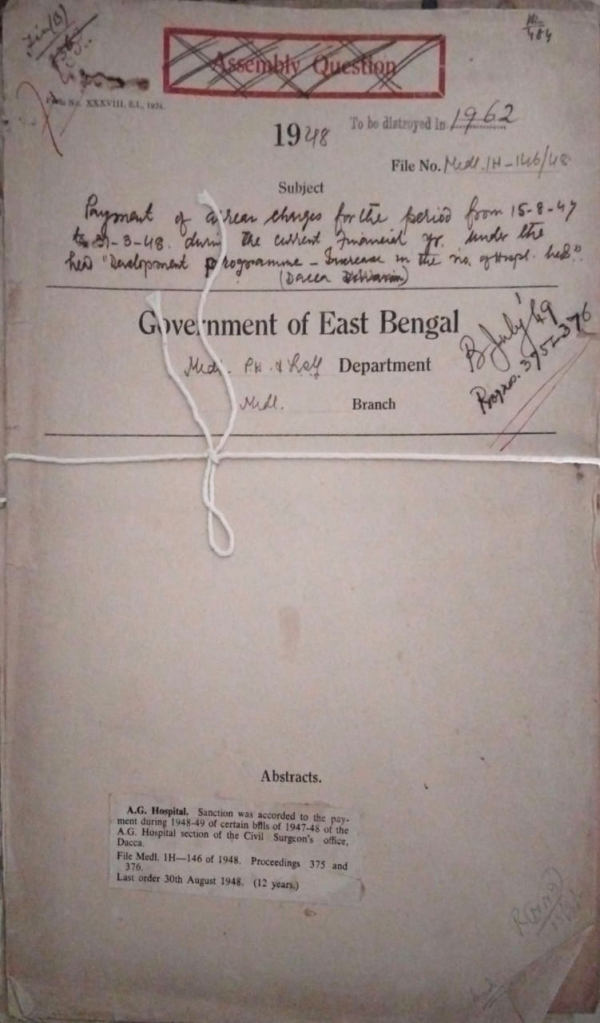 Fin(B)
Assembly Question
Form No. XXXVIII, E.I., 1921.
To be distroyed in 1962
1948
File No. Medl. 1H-146/48
Subject
Payment of arrear charges for the period from 15-8-47
to 31-3-48. during the current Financial yr. under the
hed "Development programme – Increase in the no. of Hospl. beds."
(Dacca
Government of East Bengal
Medl. P.H. & Department
Medl. Branch
B July '49
Progs. 375-376
Abstracts.
A.G. Hospital. Sanction was accorded to the pay-
ment during 1948-49 of certain bills of 1947-48 of the
A.G. Hospital section of the Civil Surgeon's office,
Dacca.
File Medl. 1H—146 of 1948. Proceedings 375 and
376.
Last order 30th August 1948. (12 years.)